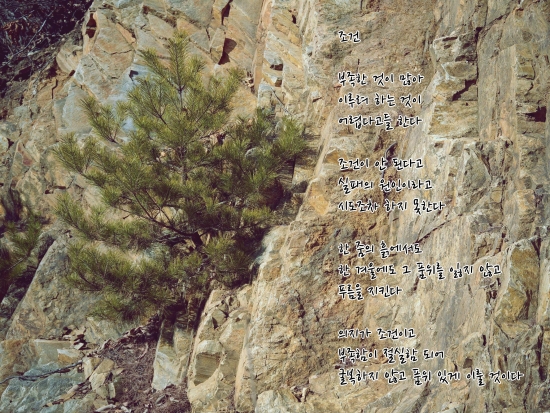 조건
부족한 것이 많아
이루려 하는 것이
어렵다고들 한다
조건이 안 된다고
실패의 원인이라고
시도조차 하지 못한다
한 줌의 흙에서도
한 겨울에도 그 품위를 잃지 않고
푸름을 지킨다
의지가 조건이고
부족함이 절실함 되어
굴복하지 않고 품위 있게 이룰 것이다